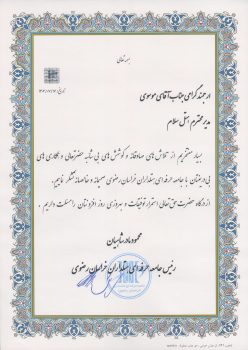 بسمه تعالی
ارجمند گرامی جناب آقای موسوی
مدیر محترم هتل سلام
بسیار مفتخریم از تلاش های صادقانه و کوشش های بی شائبه حضرتعالی و همکاری های
بی دریغتان با جامعه حرفه ای هتلداران خراسان رضوی صمیمانه و خالصانه تشکر نماییم.
از درگاه حضرت حق تعالی استمرار توفیقات و بهروزی روز افزونتان را مسئلت داریم.
محمود مادرشاهیان
رئیس جامعه حرفه ای هتلداران خراسان رضوی